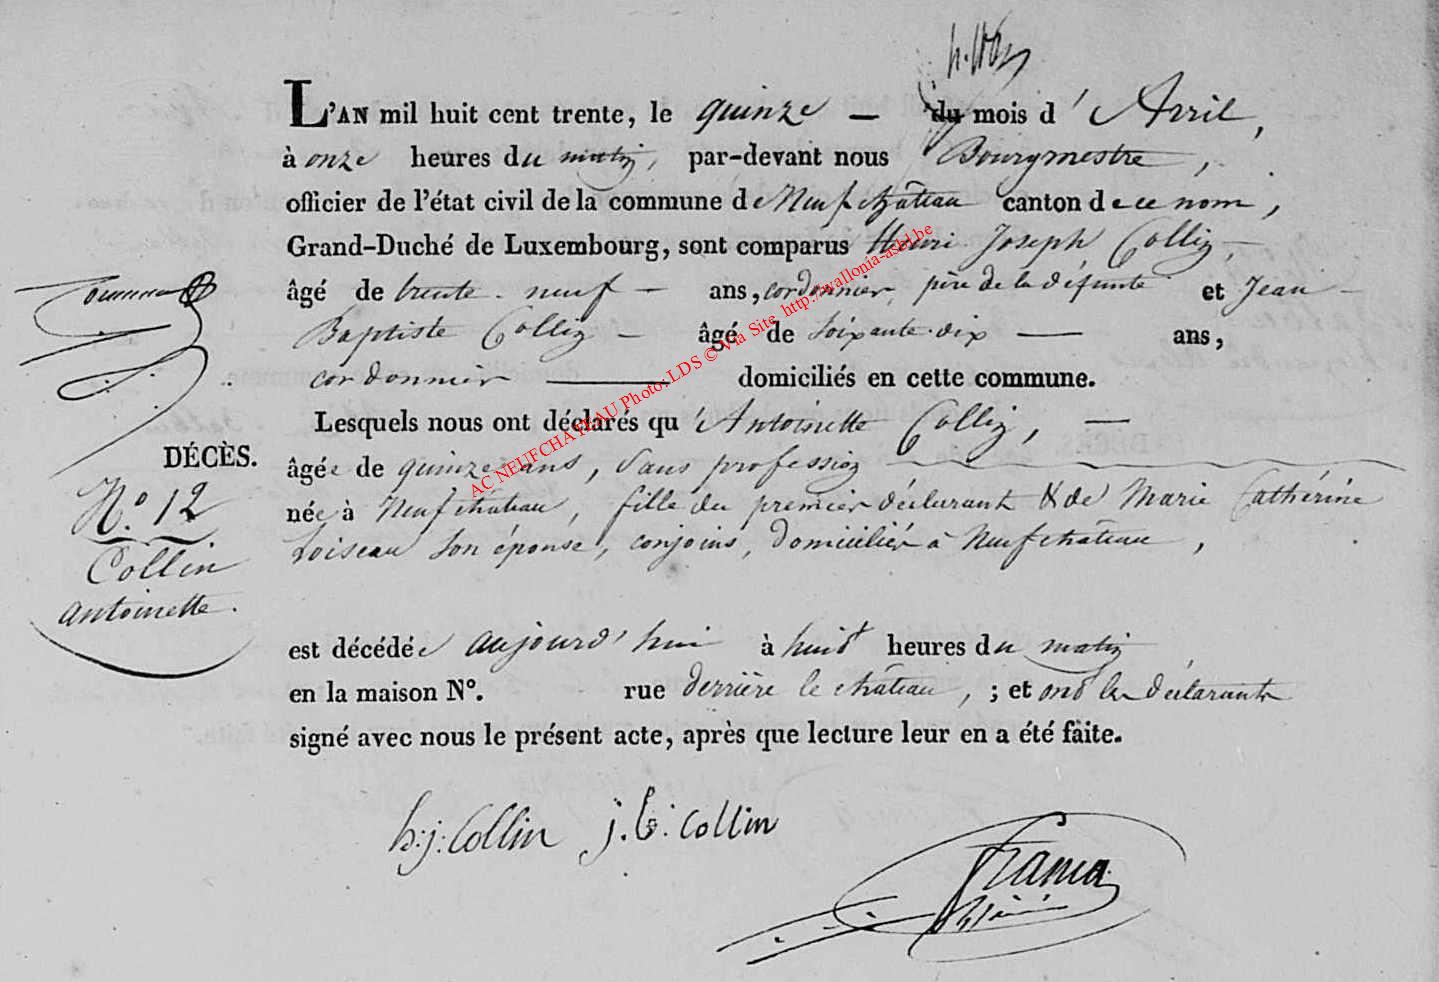 L'AN mil huit cent trente, le quinze — du mois d'Avril,
à onze heures du matin, par-devant nous Bourgmestre,
officier de l'état civil de la commune de Neufchâteau canton de ce nom,
Grand-Duché de Luxembourg, sont comparus Henri Joseph Collin —
âgé de trente-neuf — ans, cordonnier, père de la défunte et Jean-
Baptiste Collin — âgé de soixante-dix — ans,
cordonnier — domiciliés en cette commune.
Lesquels nous ont déclarés qu'Antoinette Collin, —
âgée de quinze ans, sans profession
née à Neufchâteau, fille du premier déclarant & de Marie Cathérine
Loiseau son épouse, conjoins, domiciliés à Neufchâteau,
est décédée aujourd'hui à huit heures du matin
en la maison N°. rue derrière le château, ; et ont les déclarants
signé avec nous le présent acte, après que lecture leur en a été faite.
DÉCÈS.
N.° 12
Collin
Antoinette.
h:j: Collin j. b: collin
AC NEUFCHATEAU Photo: LDS © Via Site http://wallonia-asbl.be